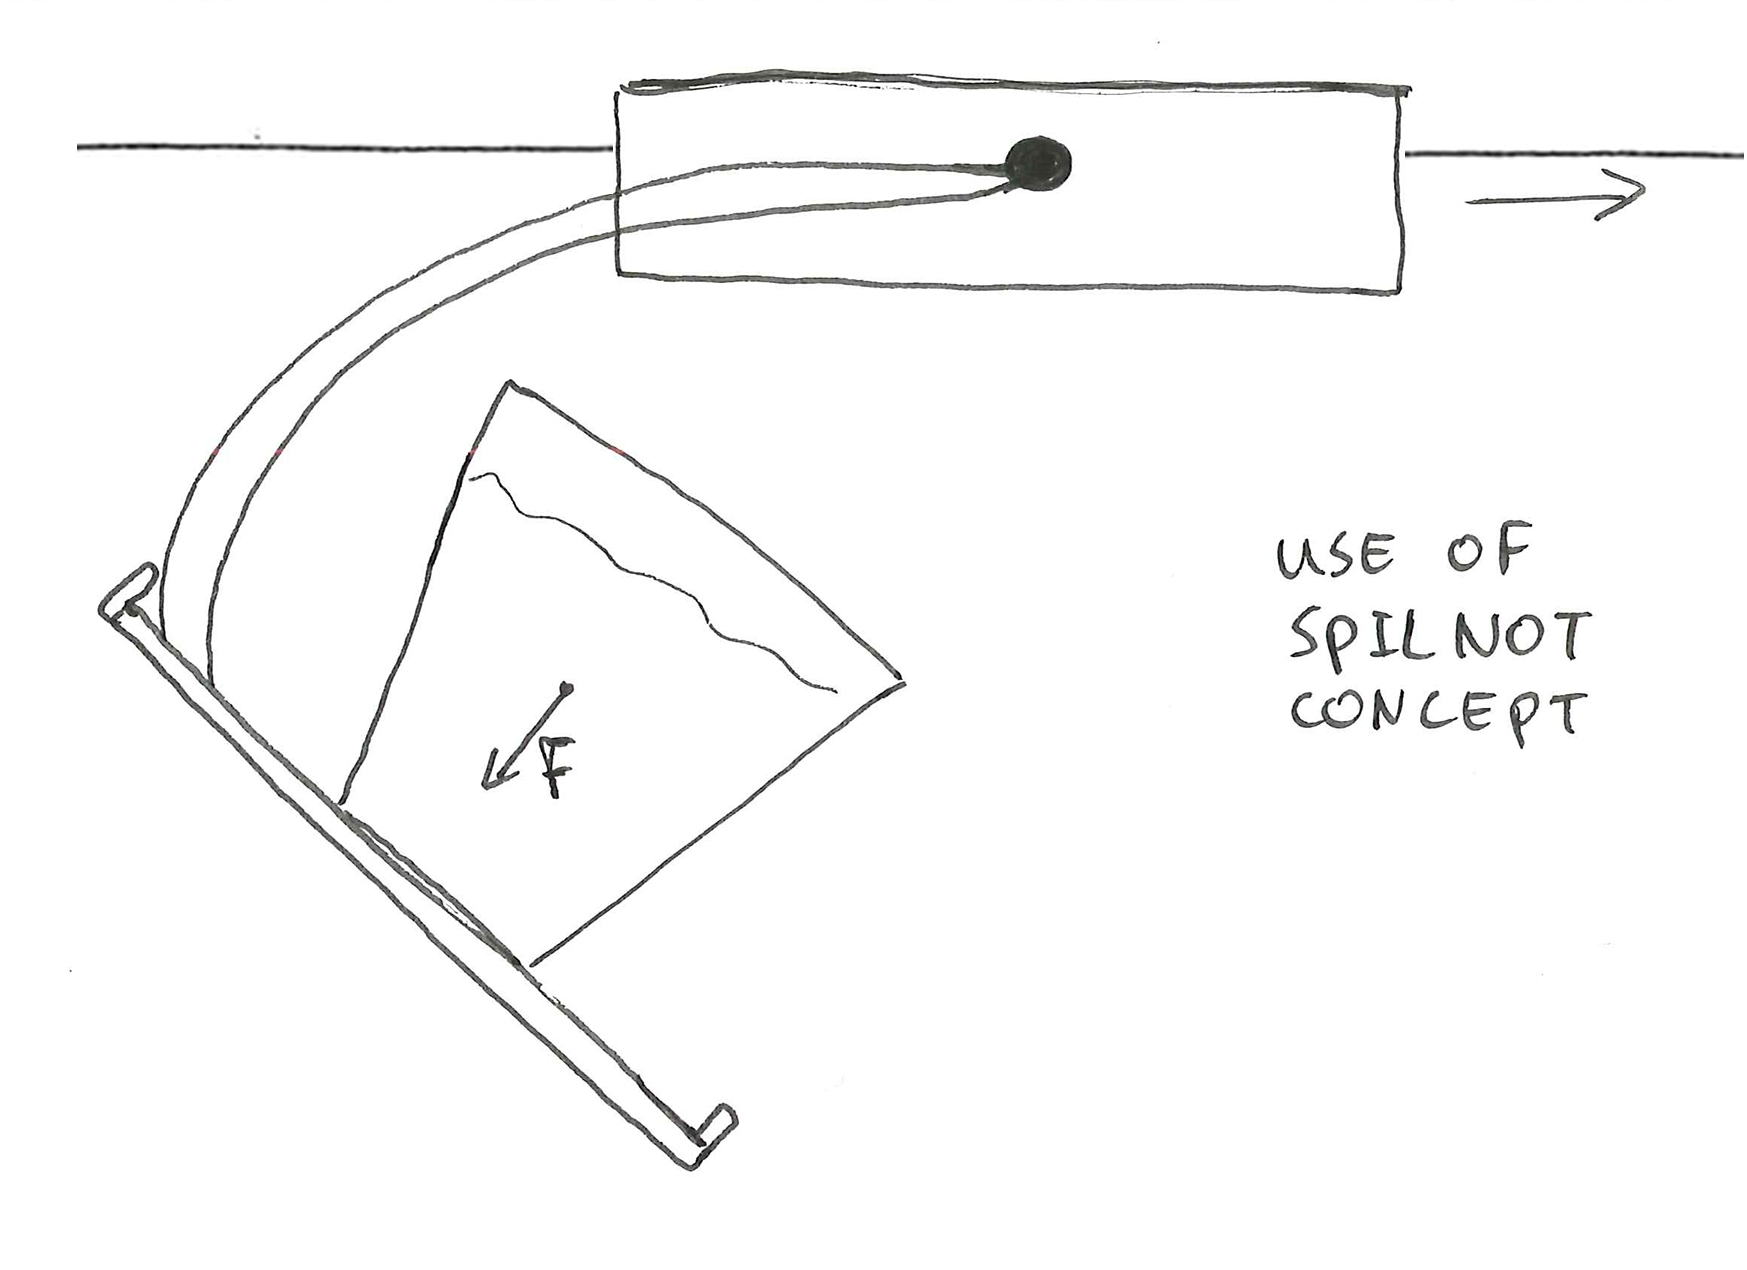 F
USE OF
SPILNOT
CONCEPT